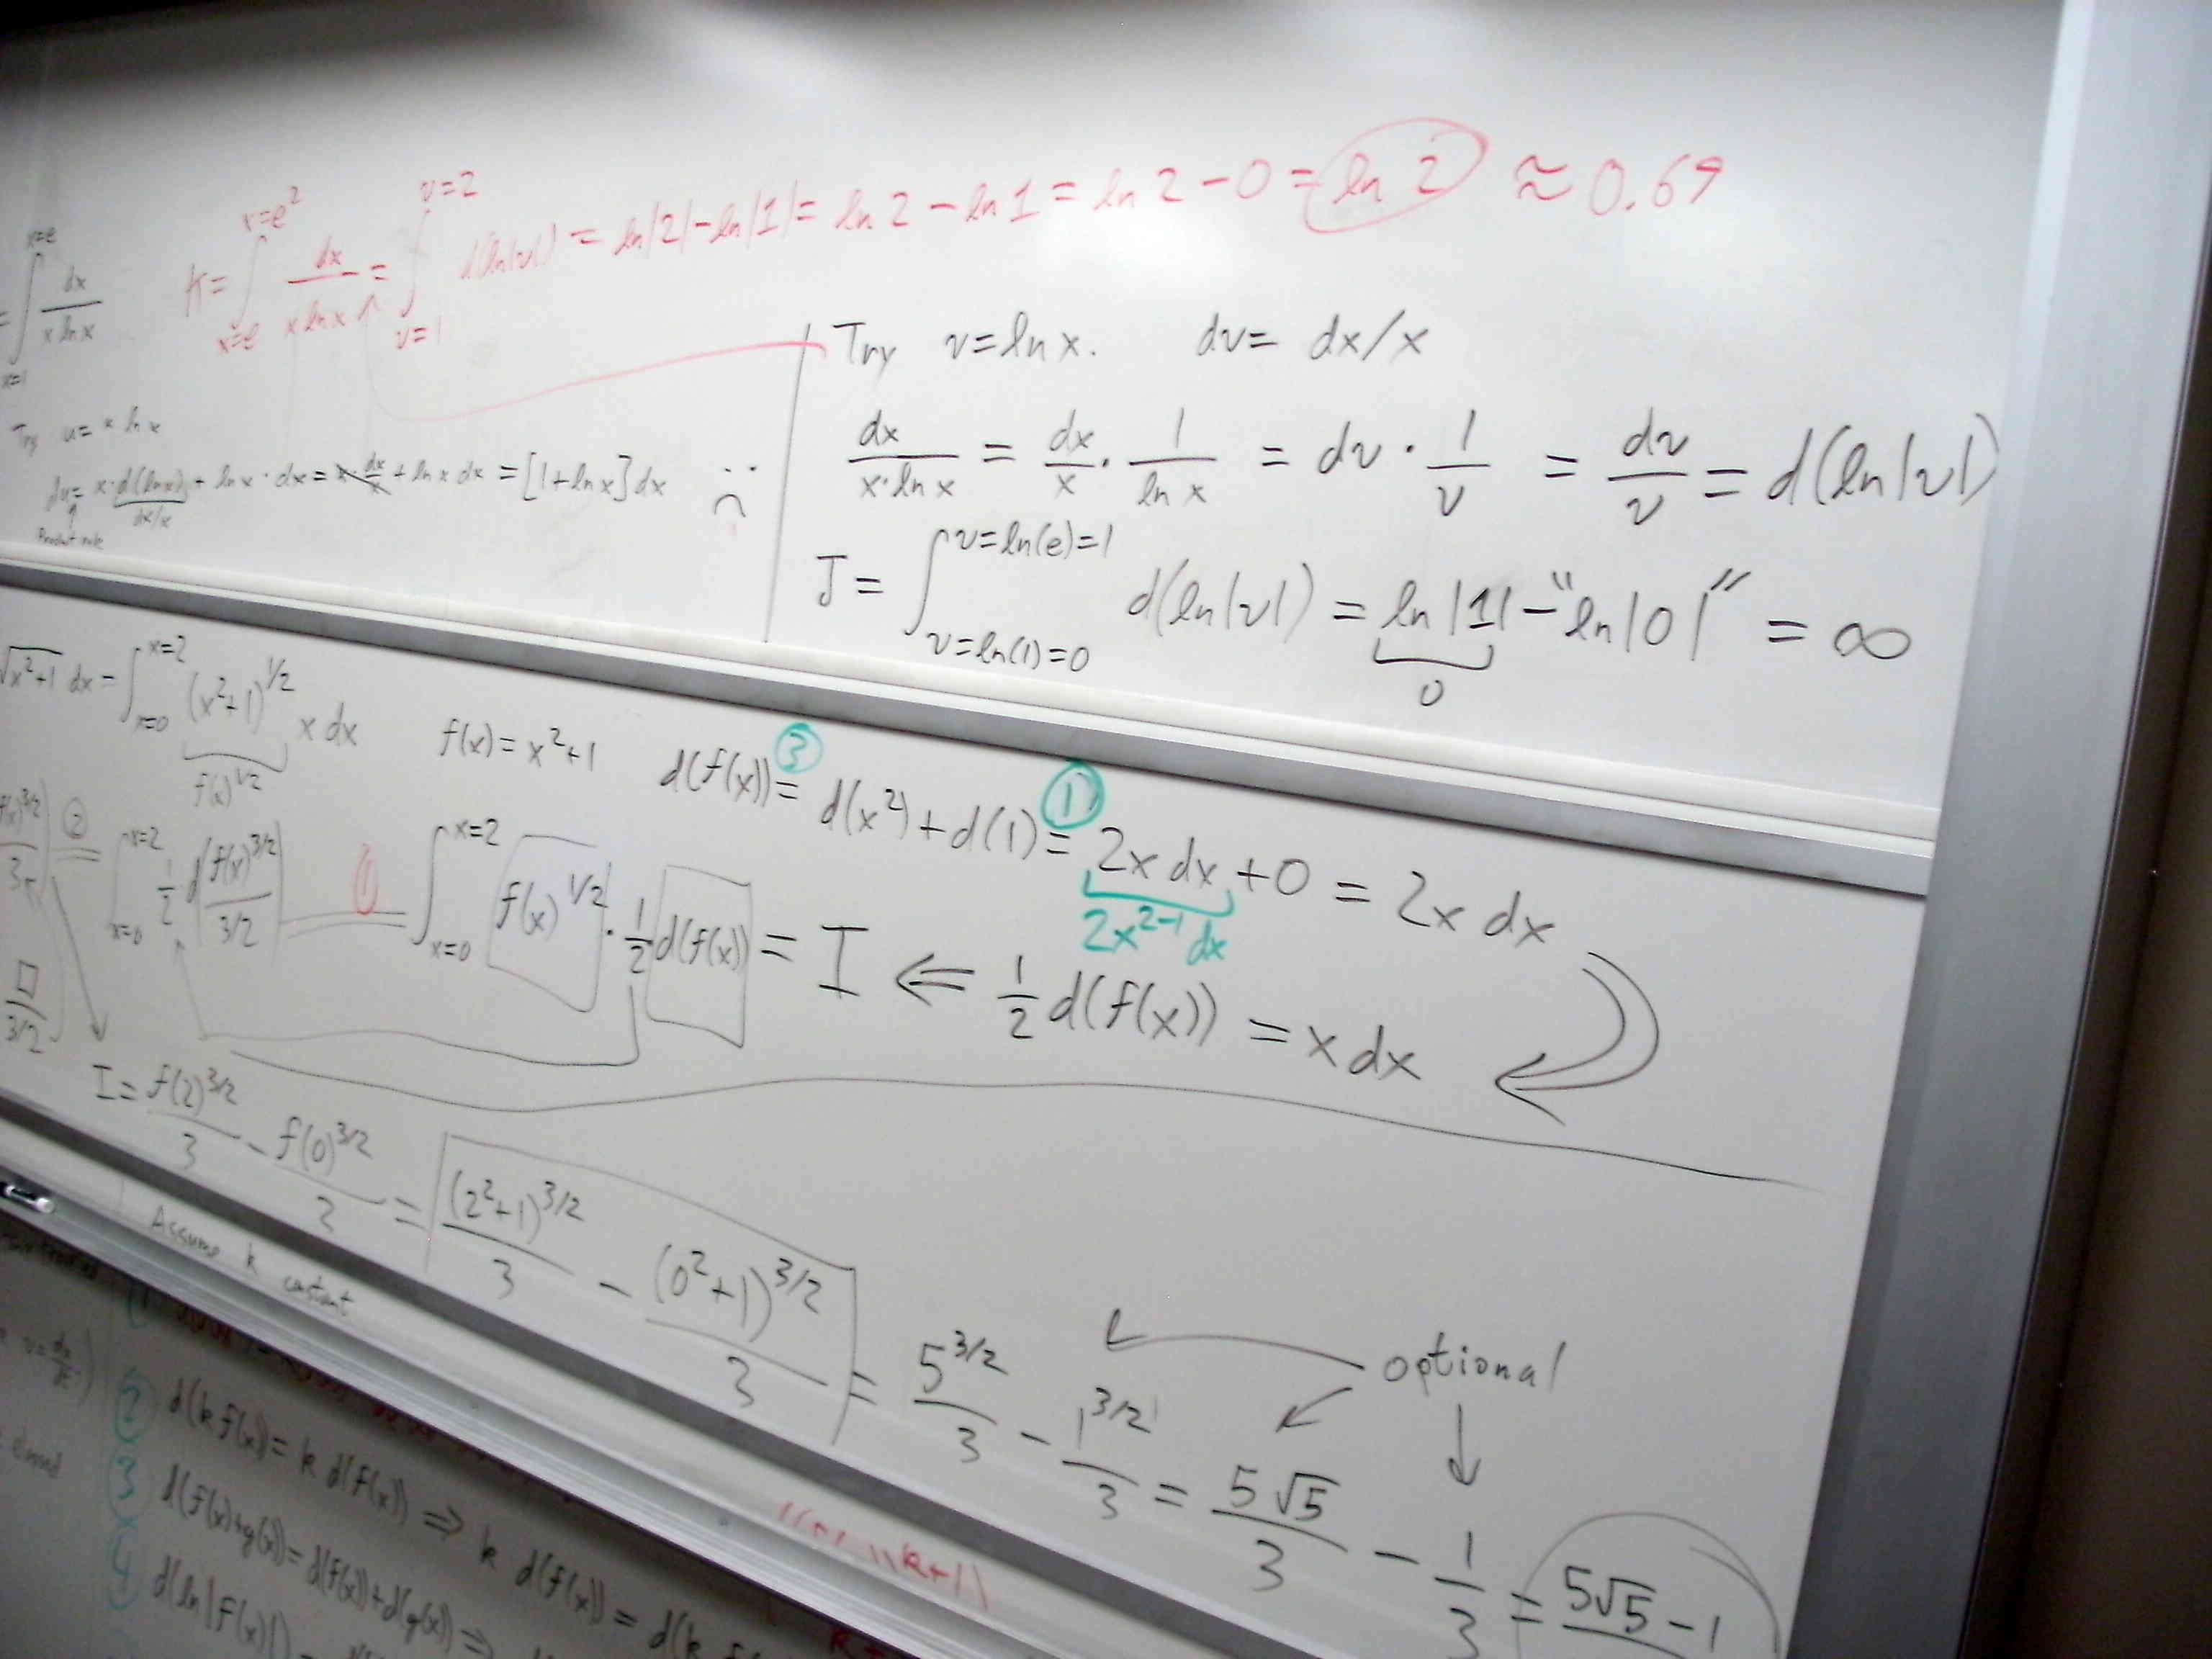 K = ∫_{x=e}^{x=e²} dx/(x ln x) = ∫_{v=1}^{v=2} d(ln|v|) = ln|2| - ln|1| = ln 2 - ln 1 = ln 2 - 0 = ln 2 ≈ 0.69
= ∫_{x=1}^{x=e} dx/(x ln x)
Try u = x ln x
du = x · d(ln x) + ln x · dx = x · dx/x + ln x dx = [1 + ln x] dx
dx/x
Product rule
Try v = ln x. dv = dx/x
dx/(x·ln x) = dx/x · 1/(ln x) = dv · 1/v = dv/v = d(ln|v|)
J = ∫_{v=ln(1)=0}^{v=ln(e)=1} d(ln|v|) = ln|1| - "ln|0|" = ∞
0
√(x²+1) dx = ∫_{x=0}^{x=2} (x²+1)^{1/2} x dx
f(x)^{1/2}
f(x) = x²+1
d(f(x)) = ③ d(x²) + d(1) = ① 2x dx + 0 = 2x dx
2x^{2-1} dx
f(x)^{3/2}/3 | ② = ∫_{x=0}^{x=2} 1/2 d(f(x)^{3/2}/(3/2)) ① = ∫_{x=0}^{x=2} f(x)^{1/2} · 1/2 d(f(x)) = I ⇐ 1/2 d(f(x)) = x dx
□/(3/2)
I = f(2)^{3/2}/3 - f(0)^{3/2}/2 = (2²+1)^{3/2}/3 - (0²+1)^{3/2}/3 = 5^{3/2}/3 - 1^{3/2}/3 = 5√5/3 - 1/3 = 5√5 - 1
optional
Assume k constant
①
② d(k f(x)) = k d(f(x)) ⇒ k d(f(x)) = d(k f
③ d(f(x)+g(x)) = d(f(x)) + d(g(x)) ⇒
④ d(ln|f(x)|) =
k+1